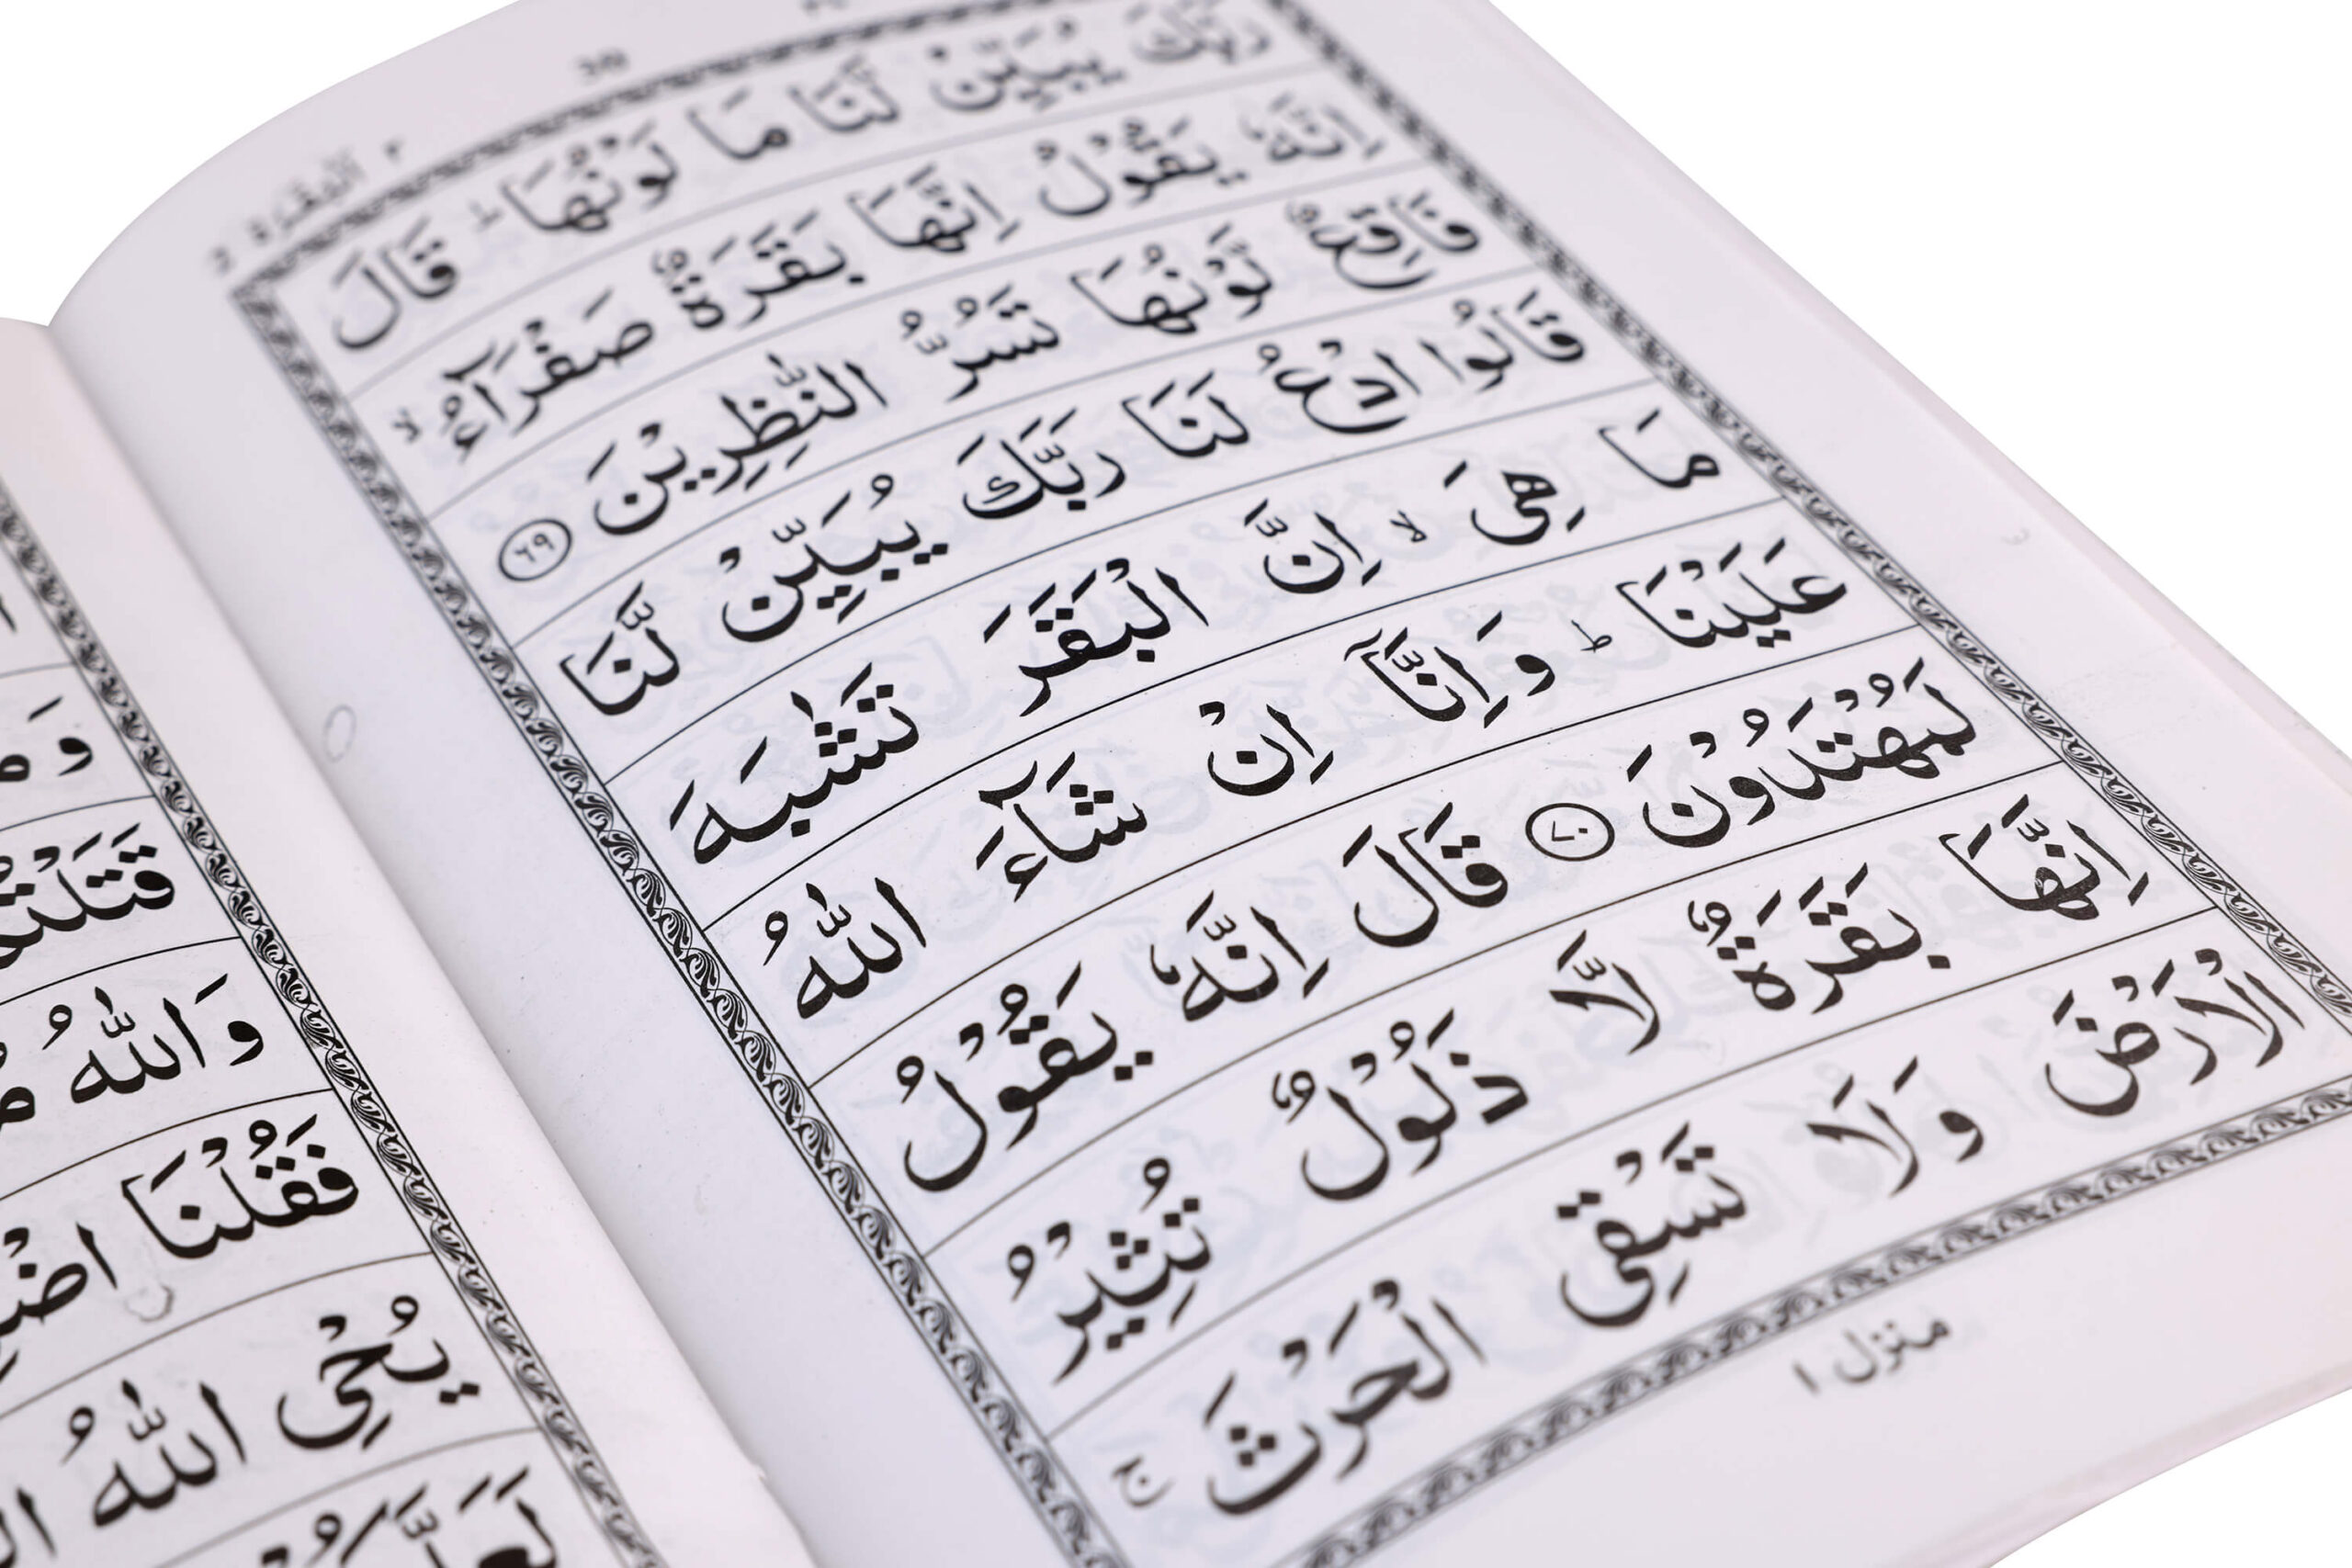 البقرة ٢
رَبَّكَ يُبَيِّنْ لَّنَا مَا لَوْنُهَا ؕ قَالَ
اِنَّهٗ يَقُوْلُ اِنَّهَا بَقَرَةٌ صَفْرَآءُ ۙ
فَاقِعٌ لَّوْنُهَا تَسُرُّ النّٰظِرِيْنَ ٦٩
قَالُوا ادْعُ لَنَا رَبَّكَ يُبَيِّنْ لَّنَا
مَا هِىَ ۙ اِنَّ الْبَقَرَ تَشٰبَهَ
عَلَيْنَا ؕ وَاِنَّآ اِنْ شَآءَ اللّٰهُ
لَمُهْتَدُوْنَ ٧٠ قَالَ اِنَّهٗ يَقُوْلُ
اِنَّهَا بَقَرَةٌ لَّا ذَلُوْلٌ تُثِيْرُ
الْاَرْضَ وَلَا تَسْقِى الْحَرْثَ ۚ
منزل ١
قَتَلْتُمْ
وَاللّٰهُ
فَقُلْنَا
يُحْىِ اللّٰهُ